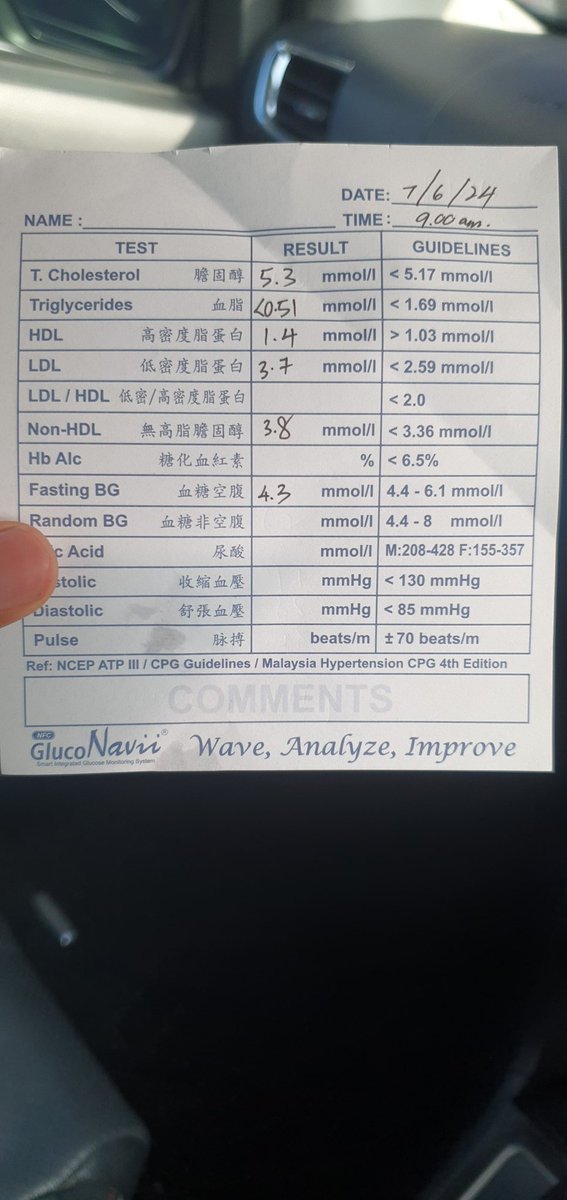 DATE: 7/6/24
NAME : TIME: 9.00 am.
TEST RESULT GUIDELINES
T. Cholesterol 膽固醇 5.3 mmol/l < 5.17 mmol/l
Triglycerides 血脂 <0.51 mmol/l < 1.69 mmol/l
HDL 高密度脂蛋白 1.4 mmol/l > 1.03 mmol/l
LDL 低密度脂蛋白 3.7 mmol/l < 2.59 mmol/l
LDL / HDL 低密/高密度脂蛋白 < 2.0
Non-HDL 無高脂膽固醇 3.8 mmol/l < 3.36 mmol/l
Hb Alc 糖化血紅素 % < 6.5%
Fasting BG 血糖空腹 4.3 mmol/l 4.4 - 6.1 mmol/l
Random BG 血糖非空腹 mmol/l 4.4 - 8 mmol/l
c Acid 尿酸 mmol/l M:208-428 F:155-357
stolic 收縮血壓 mmHg < 130 mmHg
Diastolic 舒張血壓 mmHg < 85 mmHg
Pulse 脉搏 beats/m ± 70 beats/m
Ref: NCEP ATP III / CPG Guidelines / Malaysia Hypertension CPG 4th Edition
COMMENTS
NFC
GlucoNavii® Wave, Analyze, Improve
Smart Integrated Glucose Monitoring System